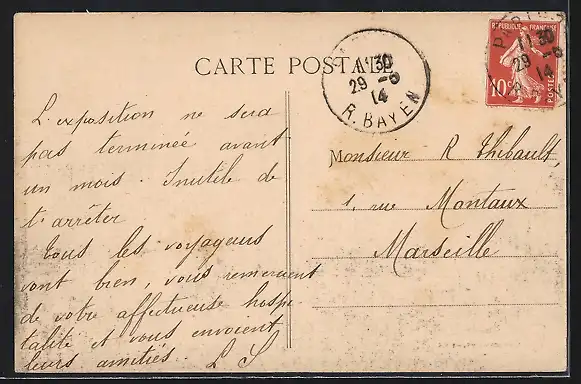 CARTE POSTALE
REPUBLIQUE FRANÇAISE
10c
POSTES
PARIS
11 30
29 -6
14
11 30
29 -6
14
R. BAYEN
L'exposition ne sera
pas terminée avant
un mois. Inutile de
t'arrêter
Tous les voyageurs
vont bien, vous remercient
de votre affectueuse hospi-
talité et vous envoient
leurs amitiés. L S
Monsieur R Thibault,
1, rue Montaux
Marseille